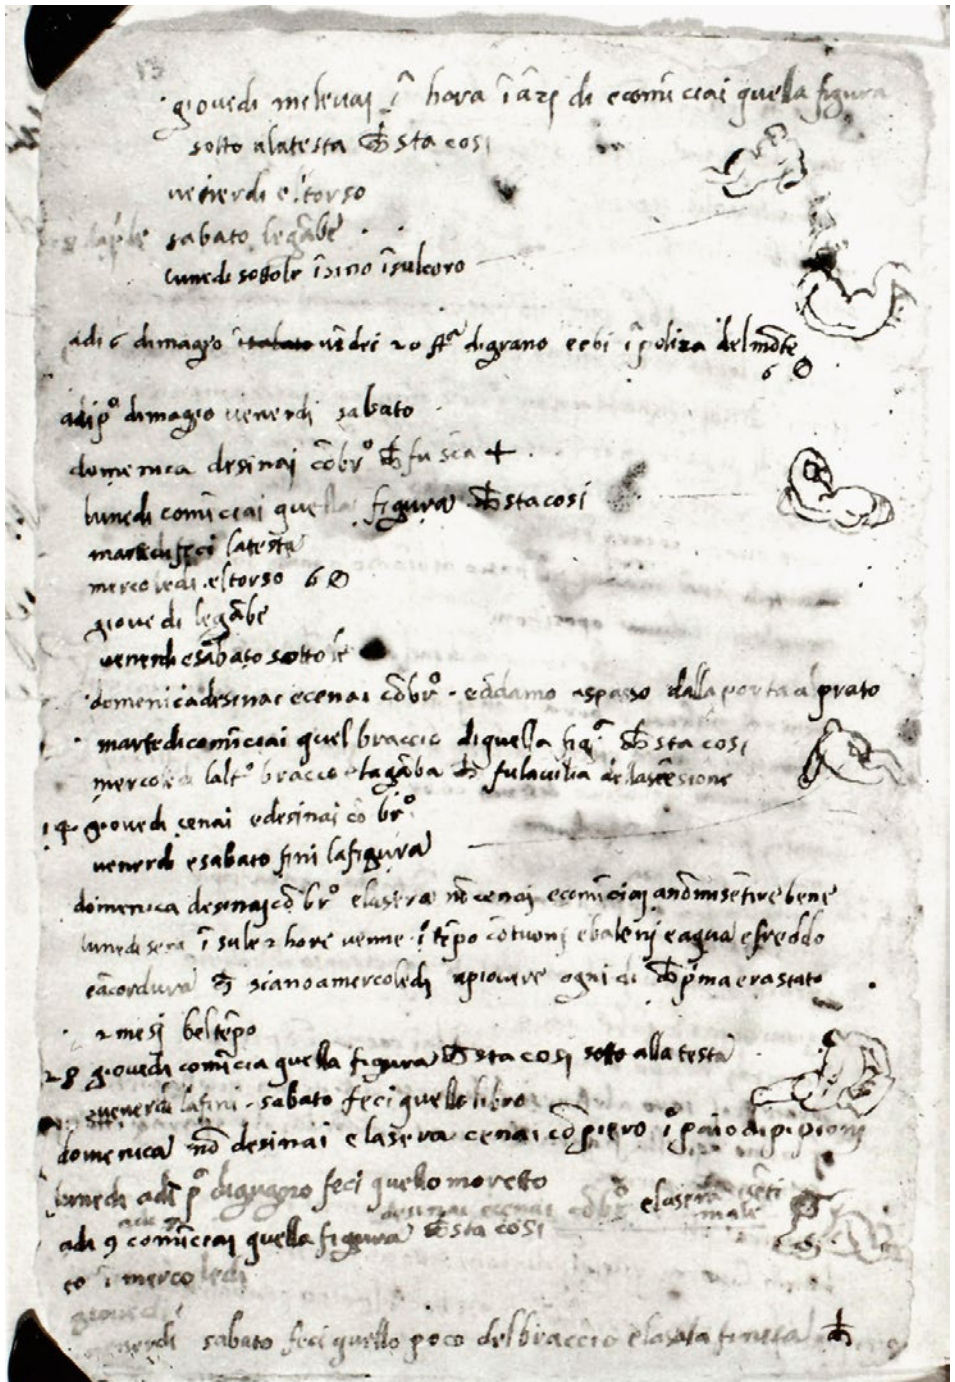 giovedi mi levai 1 hora inãzi di e comĩciai quella figura
sotto a la testa che sta cosi
venerdi el torso
sabato le gãbe
lunedi sotto le
adi 6 di magio vẽdei 20 sta di grano e ebi ĩ poliza del mõte
6 Ø
adi pº di magio venerdi sabato
domenica desinai cõ brº che fu sca +
lunedi comĩciai quella figura che sta cosi
martedi feci la testa
mercoledi el torso 6 Ø
giovedi le gãbe
venerdi e sabato sotto le
domenica desinai e cenai cõ brº e ãdamo a spasso dalla porta al prato
martedi comĩciai quel braccio di quella figª che sta cosi
mercoledi laltº braccio e la gãba che fu la vilia de lascẽsione
14 giovedi cenai e desinai cõ brº
venerdi e sabato fini la figura
domenica desinai cõ brº e la sera nõ cenai e comĩciai a nõ mi sẽtire bene
lunedi sera ĩ su le 2 hore venne 1º tẽpo cõ tuonj e balenj e aqua e freddo
e a mercoledi a piovere ogni di che pma era stato
2 mesi bel tẽpo
28 giovedi comĩcia quella figura che sta cosi sotto alla testa
venerdi la fini - sabato feci quello libro
domenica nõ desinai e la sera cenai cõ piero 1º paio di pipioni
lunedi adi pº di giugno feci quello moretto
desinai e cenai cõ brº e la sera mi sẽti
male
adi 9 comĩciai quella figura che sta cosi
mercoledi
giovedi
venerdi sabato feci quello poco del braccio